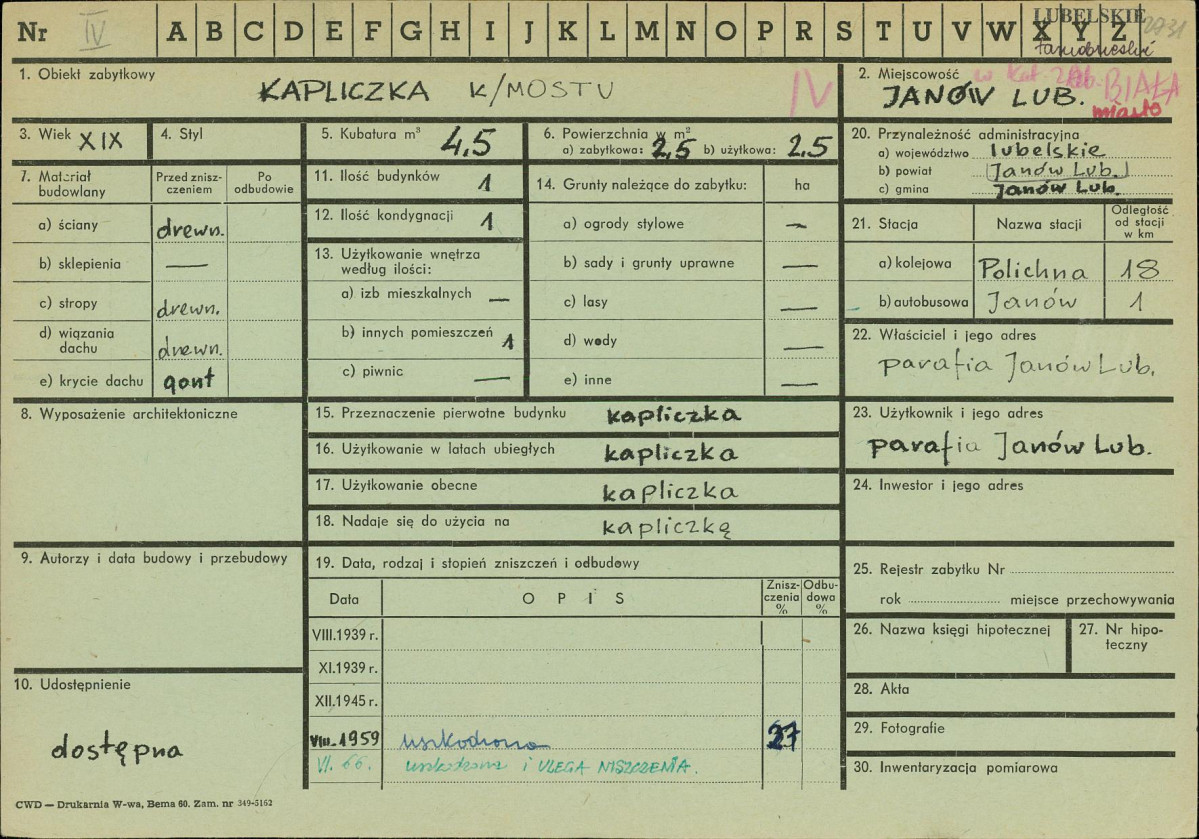 Nr IV A B C D E F G H I J K L M N O P R S T U V W X Y Z
LUBELSKIE
1. Obiekt zabytkowy
KAPLICZKA K/MOSTU IV
2. Miejscowość
JANÓW LUB. BIAŁA
miasto
3. Wiek XIX
4. Styl
5. Kubatura m³ 4,5
6. Powierzchnia w m²
a) zabytkowa: 2,5 b) użytkowa: 2,5
20. Przynależność administracyjna
a) województwo lubelskie
b) powiat (Janów Lub.)
c) gmina Janów Lub.
7. Materiał budowlany
Przed zniszczeniem
Po odbudowie
a) ściany drewn.
b) sklepienia —
c) stropy drewn.
d) wiązania dachu drewn.
e) krycie dachu gont
11. Ilość budynków 1
12. Ilość kondygnacji 1
13. Użytkowanie wnętrza
według ilości:
a) izb mieszkalnych —
b) innych pomieszczeń 1
c) piwnic —
14. Grunty należące do zabytku: ha
a) ogrody stylowe —
b) sady i grunty uprawne —
c) lasy —
d) wody —
e) inne —
21. Stacja
Nazwa stacji
Odległość
od stacji
w km
a) kolejowa Polichna 18
b) autobusowa Janów 1
22. Właściciel i jego adres
parafia Janów Lub.
8. Wyposażenie architektoniczne
15. Przeznaczenie pierwotne budynku kapliczka
16. Użytkowanie w latach ubiegłych kapliczka
17. Użytkowanie obecne kapliczka
18. Nadaje się do użycia na kapliczkę
23. Użytkownik i jego adres
parafia Janów Lub.
24. Inwestor i jego adres
9. Autorzy i data budowy i przebudowy
19. Data, rodzaj i stopień zniszczeń i odbudowy
Data
O P I S
Zniszczenia %
Odbudowa %
VIII.1939 r.
XI.1939 r.
XII.1945 r.
VIII.1959 uszkodzona 27
VI. 66. uszkodzona i ULEGA NISZCZENIA.
25. Rejestr zabytku Nr
rok miejsce przechowywania
26. Nazwa księgi hipotecznej
27. Nr hipoteczny
10. Udostępnienie
dostępna
28. Akta
29. Fotografie
30. Inwentaryzacja pomiarowa
CWD — Drukarnia W-wa, Bema 60. Zam. nr 349-5162